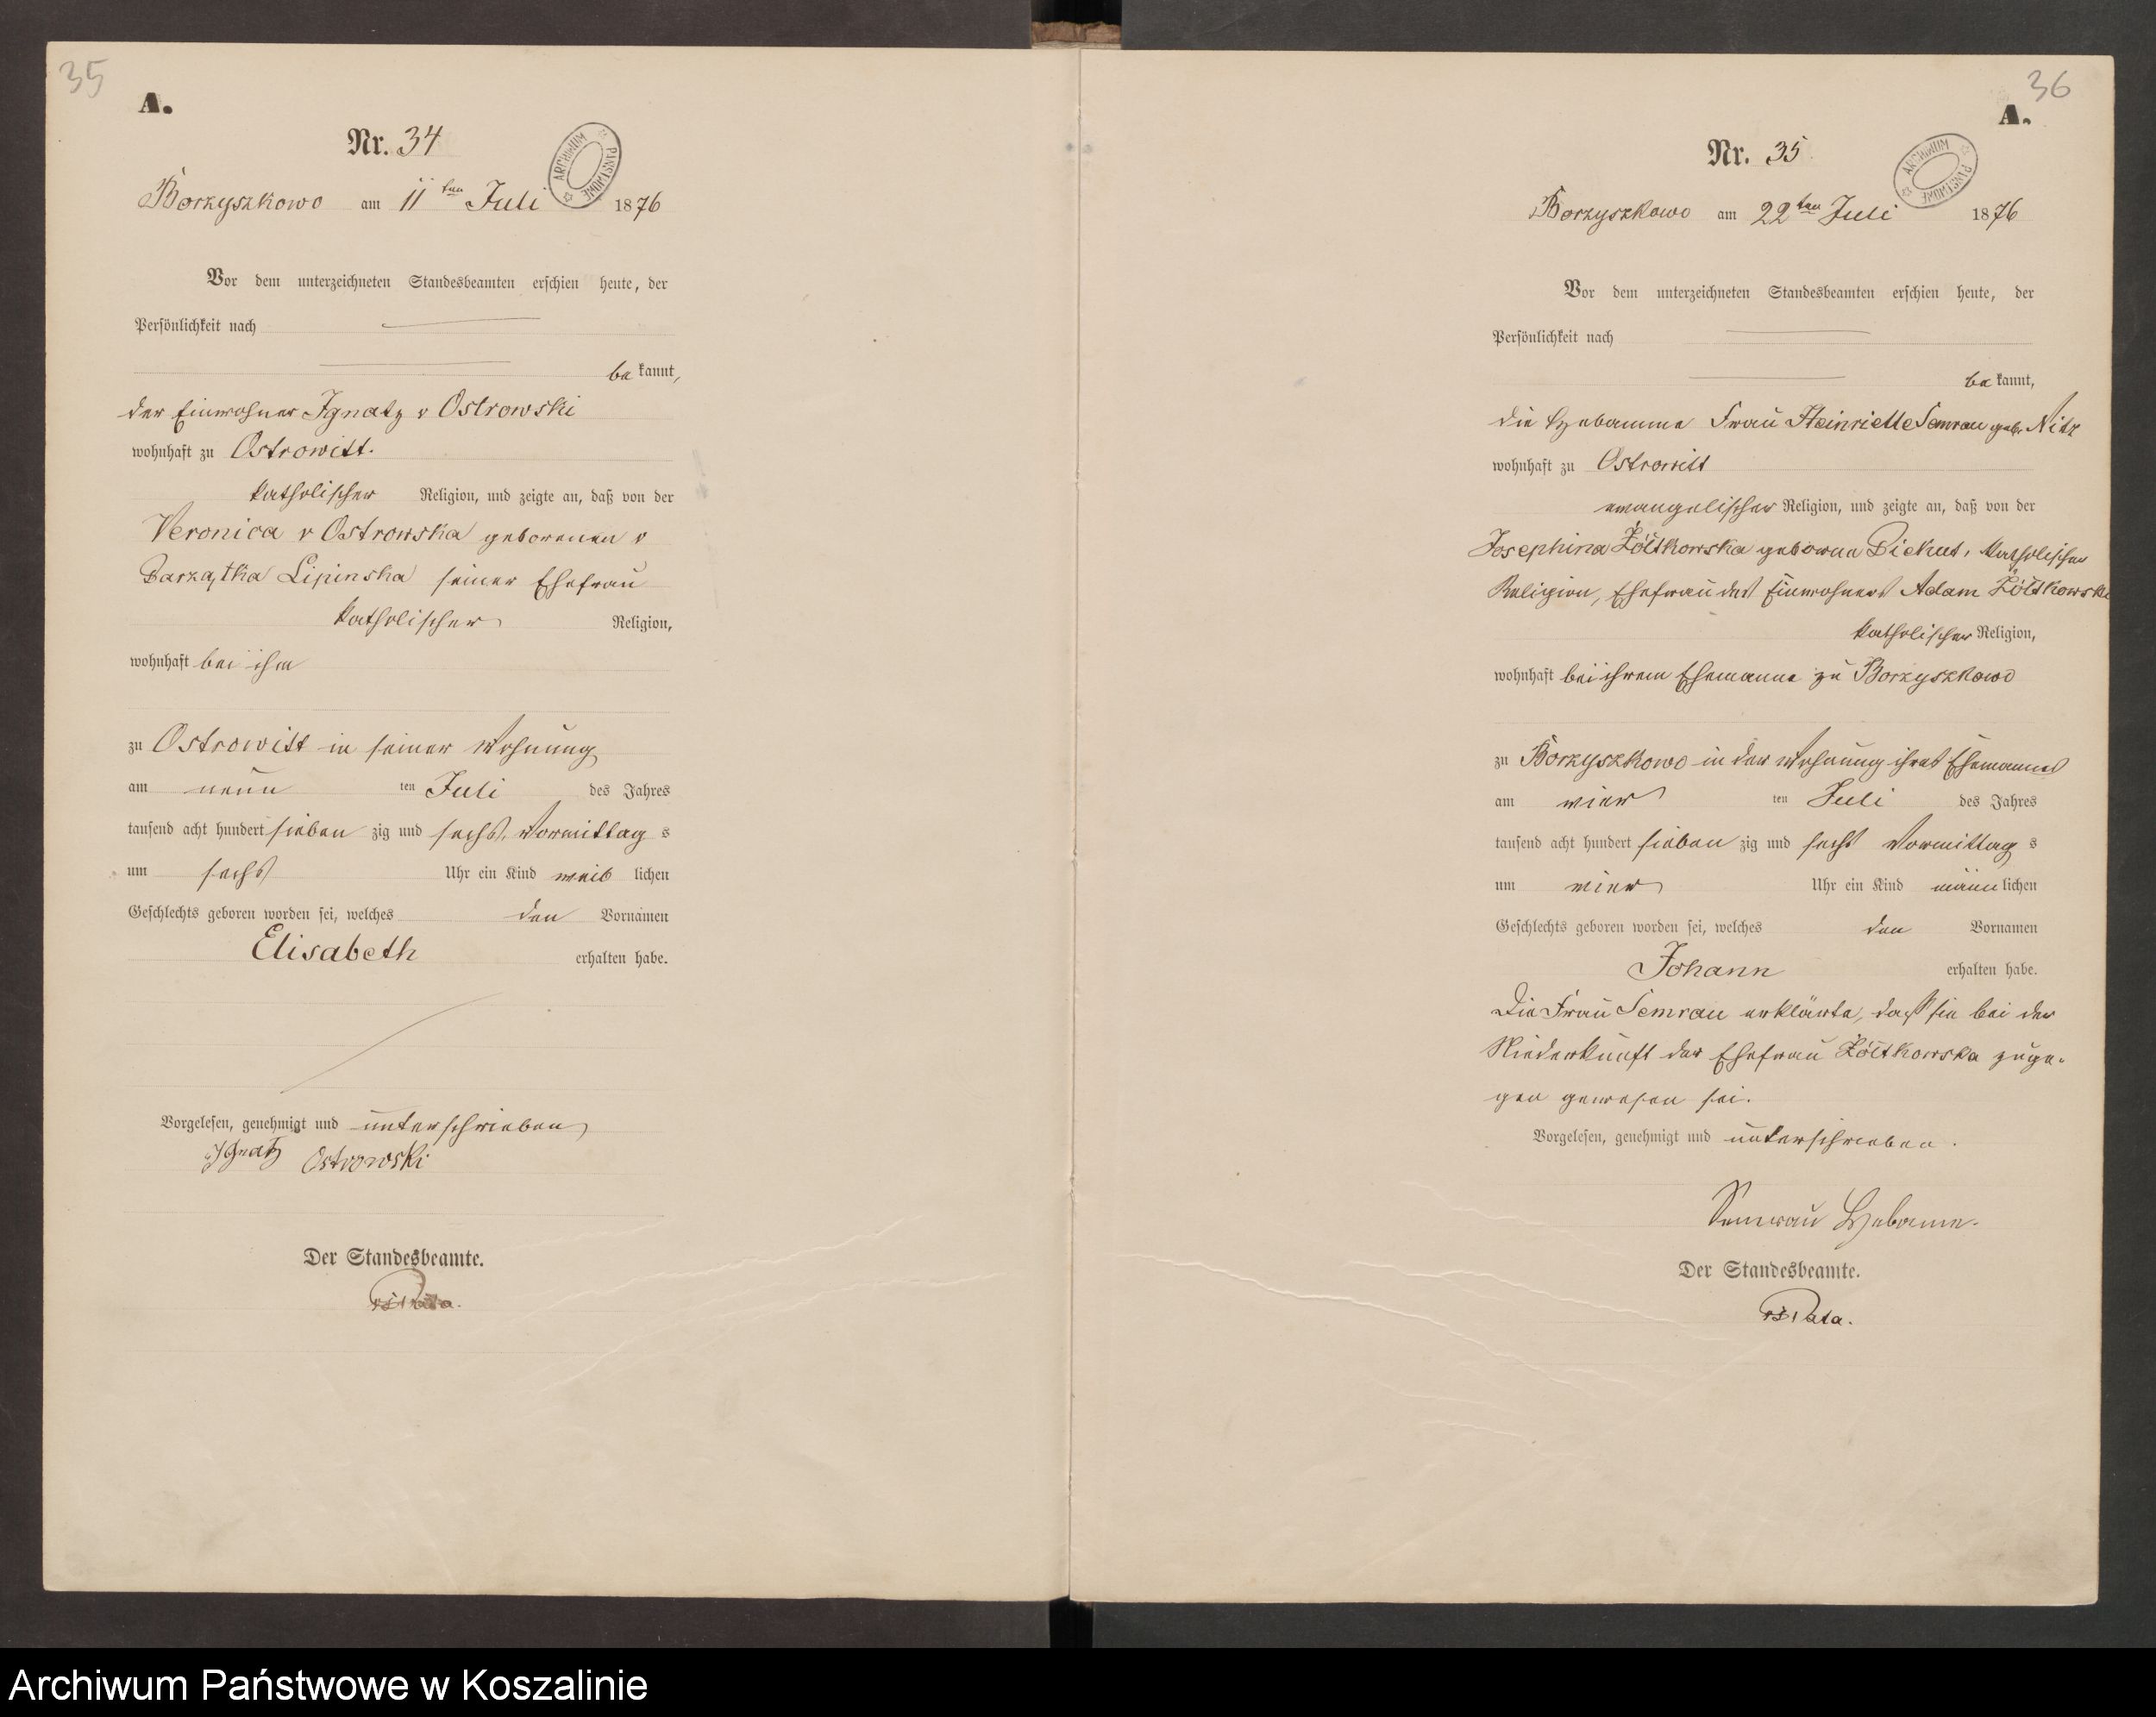 35
A.
Nr. 34
ARCHIWUM PAŃSTWOWE
Borzyszkowo am 11ten Juli 1876
Vor dem unterzeichneten Standesbeamten erschien heute, der
Persönlichkeit nach
be kannt,
der Einwohner Ignatz v Ostrowski
wohnhaft zu Ostrowitt.
katholischer Religion, und zeigte an, daß von der
Veronica v Ostrowska geborenen v
Parzątka Lipinska seiner Ehefrau
katholischer Religion,
wohnhaft bei ihm
zu Ostrowitt in seiner Wohnung
am neun ten Juli des Jahres
tausend acht hundert sieben zig und sechs, Vormittag s
um sechs Uhr ein Kind weib lichen
Geschlechts geboren worden sei, welches den Vornamen
Elisabeth erhalten habe.
Vorgelesen, genehmigt und unterschrieben
Ignatz Ostrowski
Der Standesbeamte.
36
A.
Nr. 35
ARCHIWUM PAŃSTWOWE
Borzyszkowo am 22ten Juli 1876
Vor dem unterzeichneten Standesbeamten erschien heute, der
Persönlichkeit nach
be kannt,
die Hebamme Frau Heinriette Semrau geb. Nitz
wohnhaft zu Ostrowitt
evangelischer Religion, und zeigte an, daß von der
Josephina Żółtkowska geborne Diekut, katholischer
Religion, Ehefrau des Einwohners Adam Żółtkowski
katholischer Religion,
wohnhaft bei ihrem Ehemanne zu Borzyszkowo
zu Borzyszkowo in der Wohnung ihres Ehemannes
am vier ten Juli des Jahres
tausend acht hundert sieben zig und sechs Vormittag s
um vier Uhr ein Kind männ lichen
Geschlechts geboren worden sei, welches den Vornamen
Johann erhalten habe.
Die Frau Semrau erklärte, daß sie bei der
Niederkunft der Ehefrau Żółtkowska zuge-
gen gewesen sei.
Vorgelesen, genehmigt und unterschrieben.
Semrau Hebamme.
Der Standesbeamte.
Archiwum Państwowe w Koszalinie